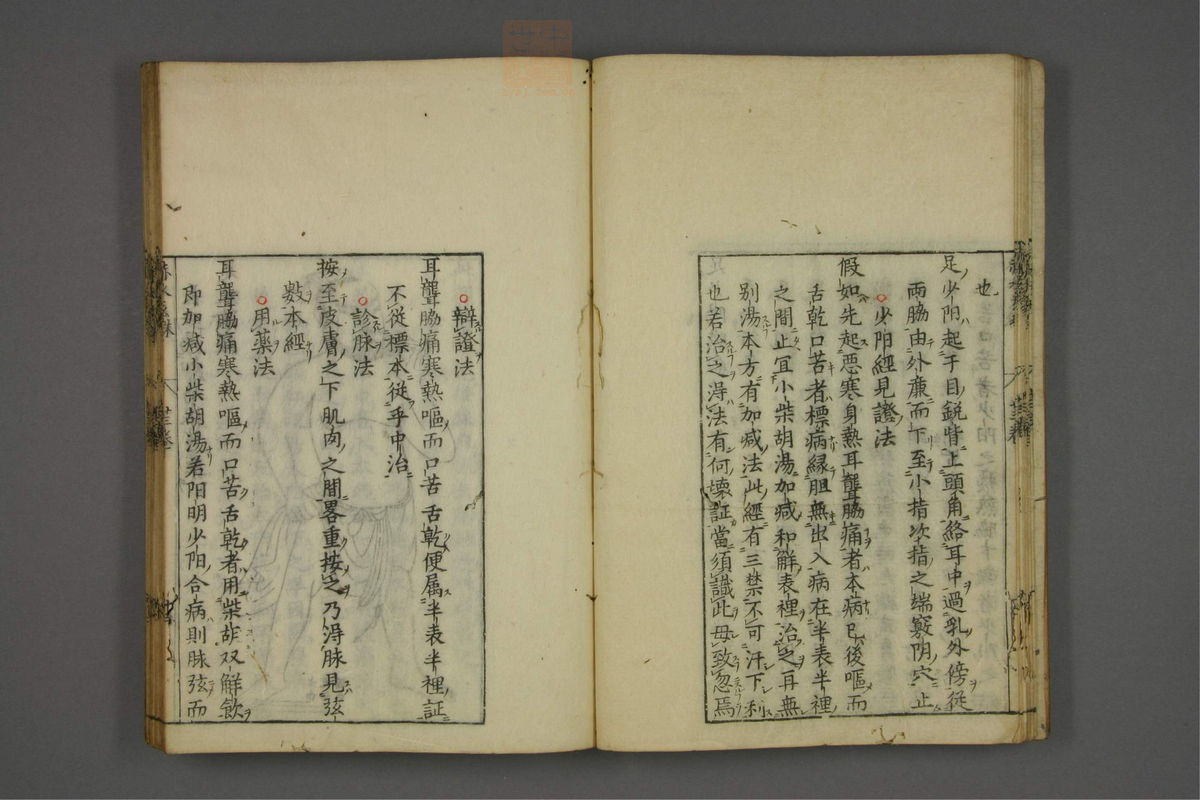 也
足少阳起于目鋭眥上頭角絡耳中過乳外傍従
两脇由外廉而下至小指次指之端竅阴穴止
少阳經見證法
假如先起惡寒身熱耳聾脇痛者本病已後嘔而
舌乾口苦者標病縁胆無出入病在半表半裡
之間止冝小柴胡湯加减和解表裡治之耳無
别湯本方有加减法此經有三禁不可汗下利
也若治之淂法有何壊証當須識此毋致忽焉
辯證法
耳聾脇痛寒熱嘔而口苦舌乾便属半表半裡証
不從標本從乎中治
診脉法
按至皮膚之下肌肉之間畧重按之乃淂脉見弦
数本經
用藥法
耳聾脇痛寒熱嘔而口苦舌乾者用柴胡双解飲
即加减小柴胡湯若阳明少阳合病則脉弦而